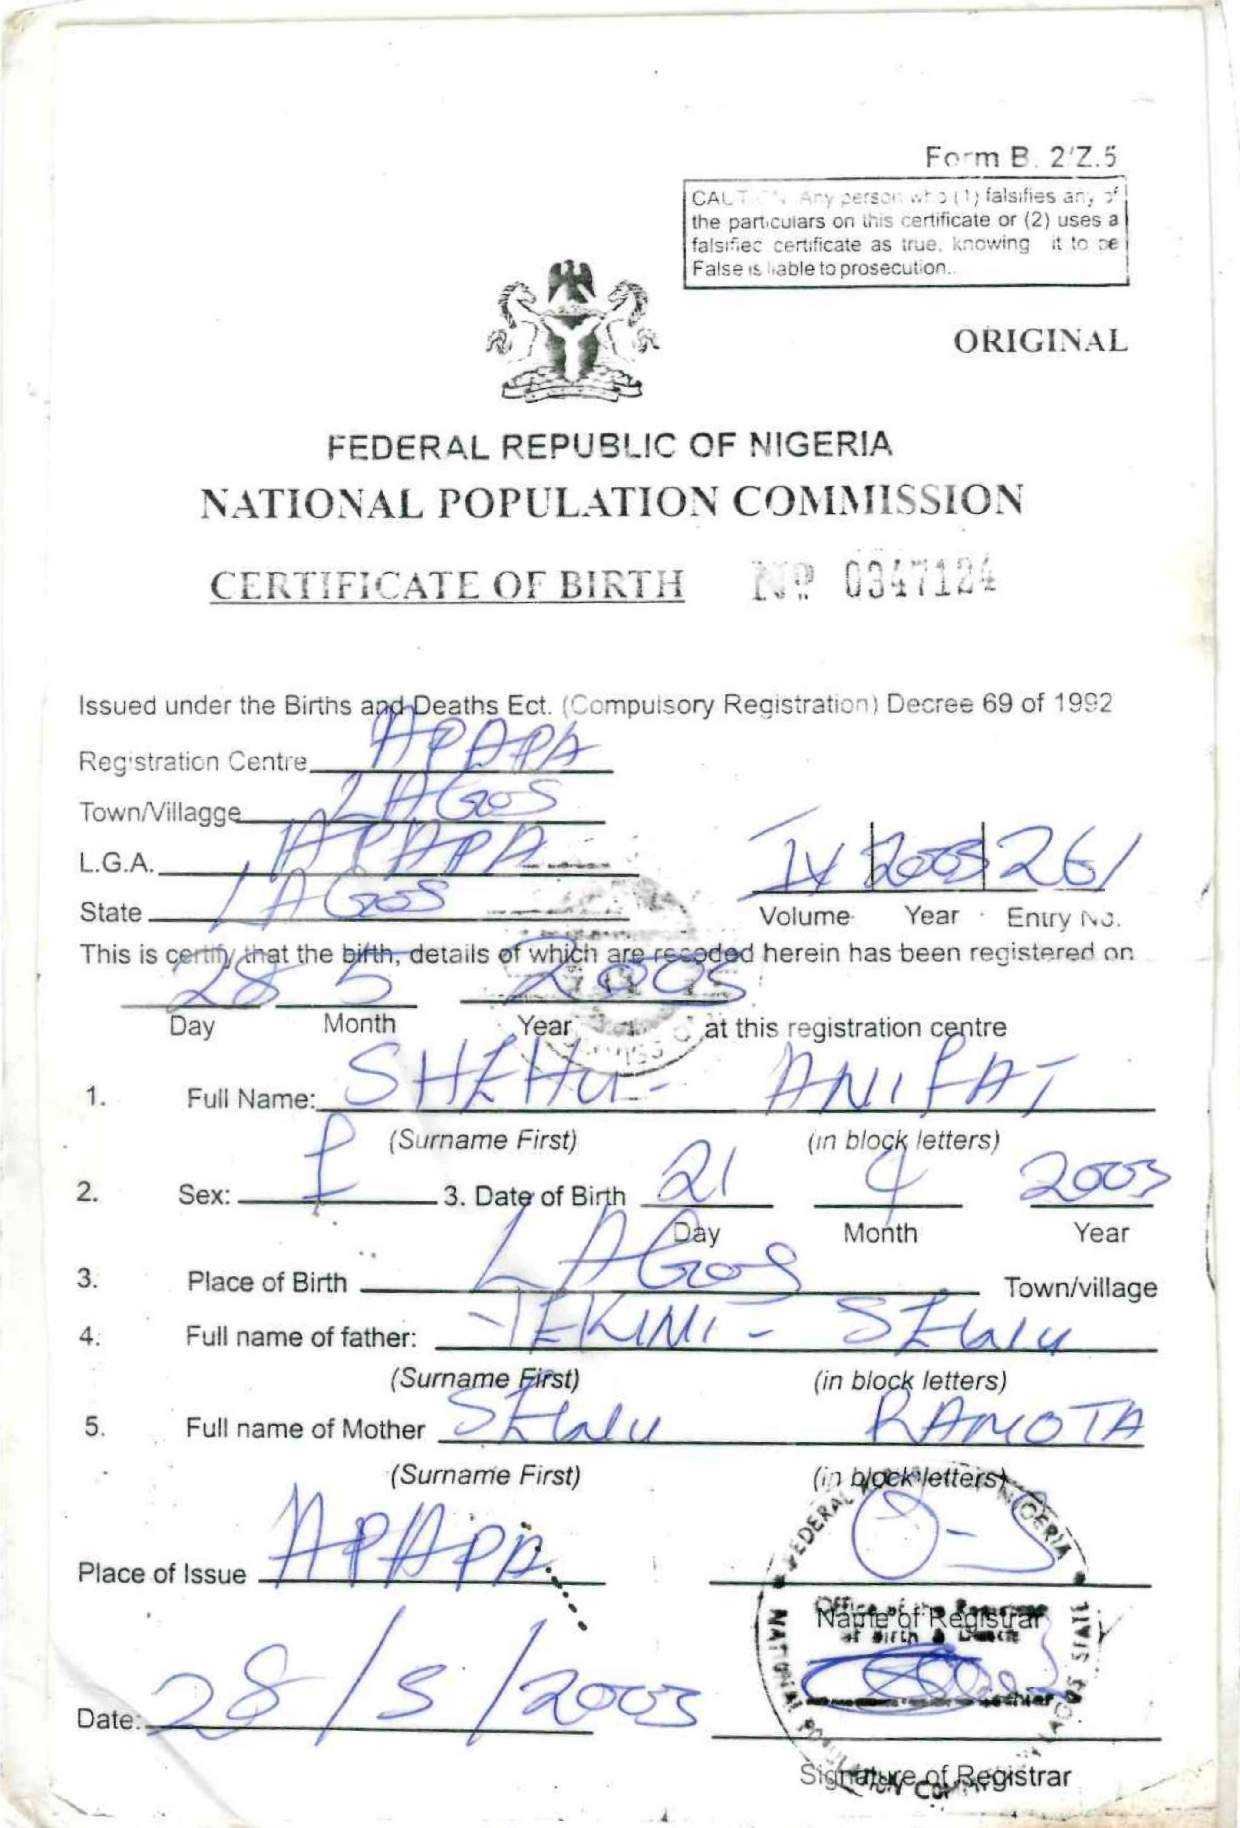 Form B. 2/Z.5
CAUTION: Any person who (1) falsifies any of
the particulars on this certificate or (2) uses a
falsified certificate as true, knowing it to be
False is liable to prosecution..
ORIGINAL
FEDERAL REPUBLIC OF NIGERIA
NATIONAL POPULATION COMMISSION
CERTIFICATE OF BIRTH Nº 0347124
Issued under the Births and Deaths Ect. (Compulsory Registration) Decree 69 of 1992
Registration Centre APAPA
Town/Villagge LAGOS
L.G.A. APAPA
State LAGOS
IV 2003 261
Volume Year Entry No.
This is certify that the birth, details of which are recoded herein has been registered on
28 5 2003
Day Month Year at this registration centre
1. Full Name: SHEHU - ANIFAT
(Surname First) (in block letters)
2. Sex: F 3. Date of Birth 21 4 2003
Day Month Year
3. Place of Birth LAGOS Town/village
4. Full name of father: TEKINI - SEHU
(Surname First) (in block letters)
5. Full name of Mother SEHU RAMOTA
(Surname First) (in block letters)
Place of Issue APAPA
FEDERAL NIGERIA
NATIONAL POPULATION LAGOS STATE
Office of the
of Birth &
Name of Registrar
Date: 28/5/2003
Signature of Registrar